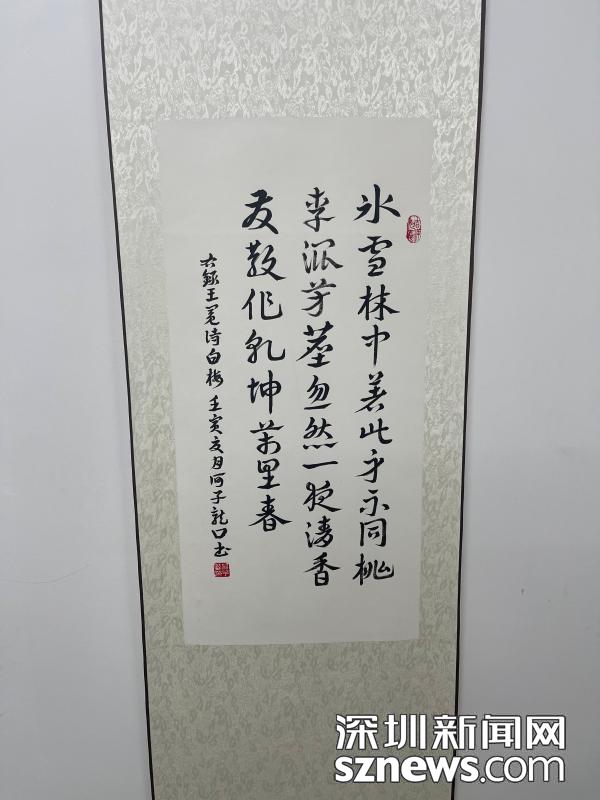 冰雪林中著此身不同桃
李混芳塵忽然一夜清香
发散作乾坤萬里春
右錄王冕诗白梅 壬寅 月 子龍口书
深圳新闻网
sznews.com